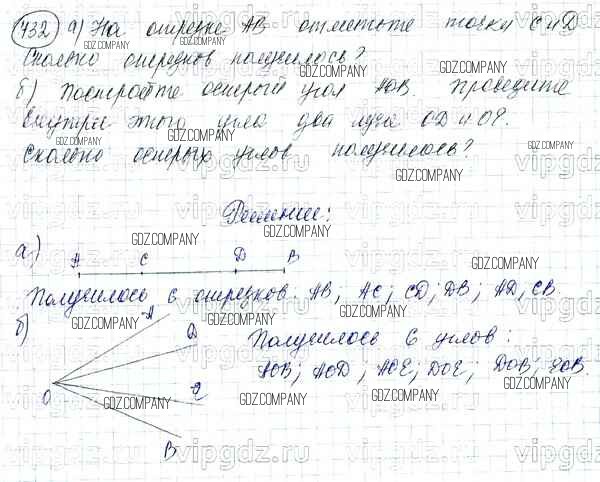 432 а) На отрезке АВ отметьте точки С и D
GDZ.COMPANY
Сколько отрезков получилось?
б) Постройте острый угол АОВ. Проведите
внутри этого угла два луча OD и OE.
Сколько острых углов получилось?
Решение:
а) А С D В
Получилось 6 отрезков: АВ; АС; CD; DB; AD, CB.
б) А D E B O
Получилось 6 углов:
АОВ; AOD; AOE; DOE; DOB; EOB.
vipgdz.ru